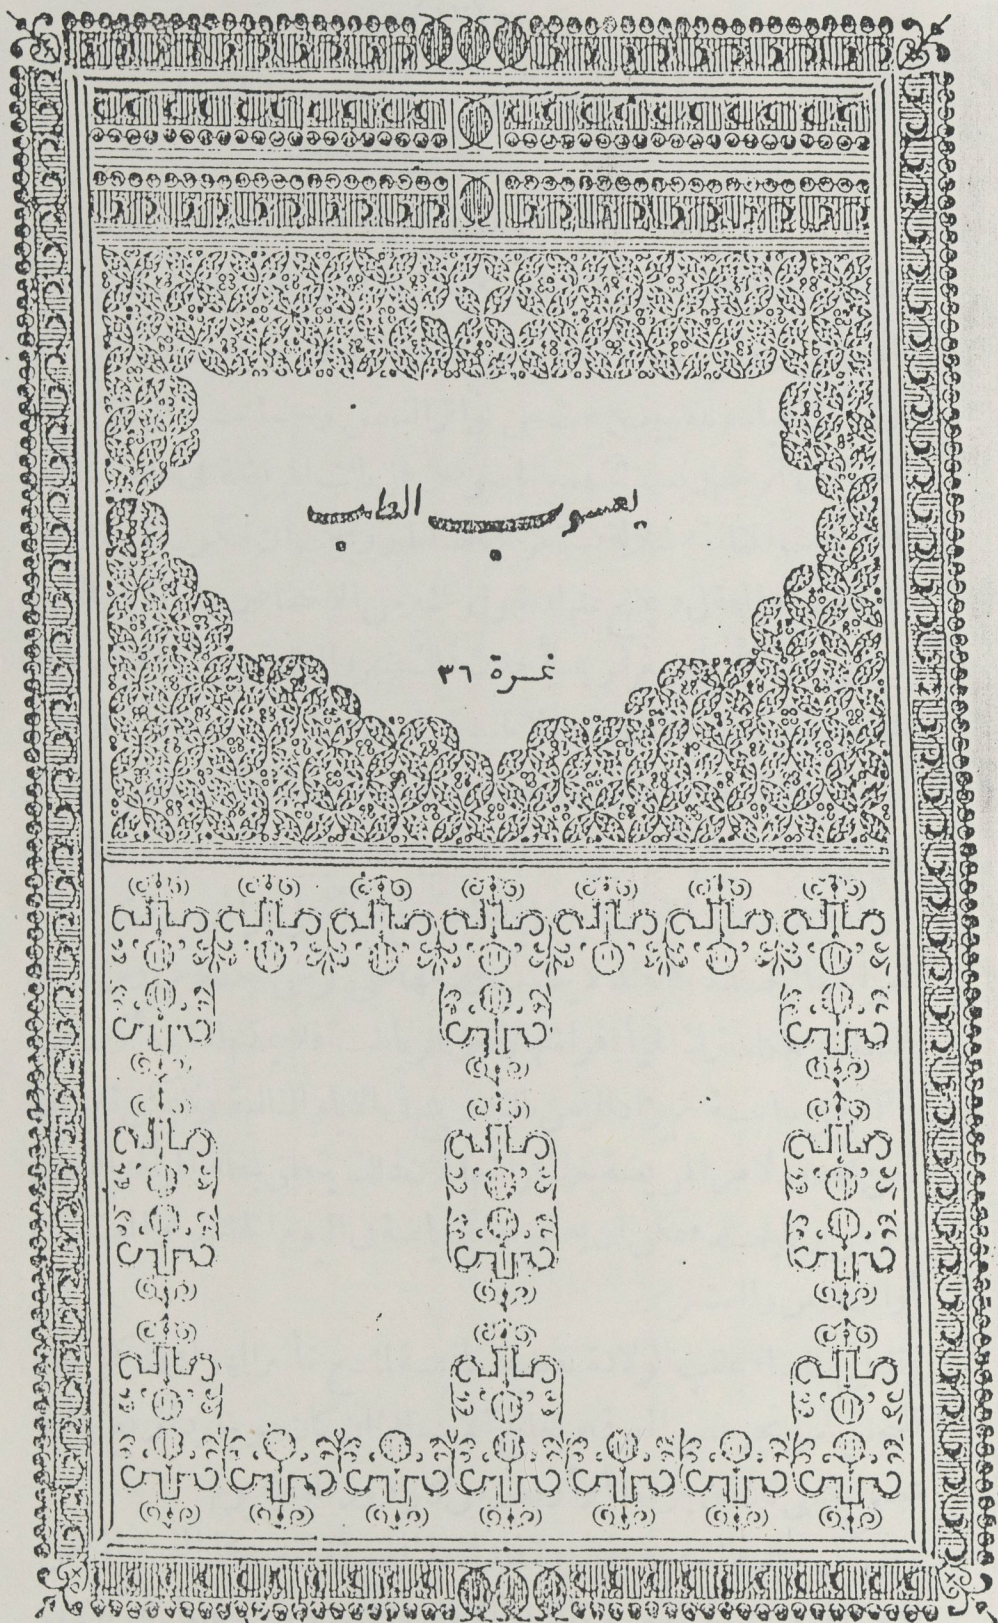 يعسوب الطب
نمرة ٣٦